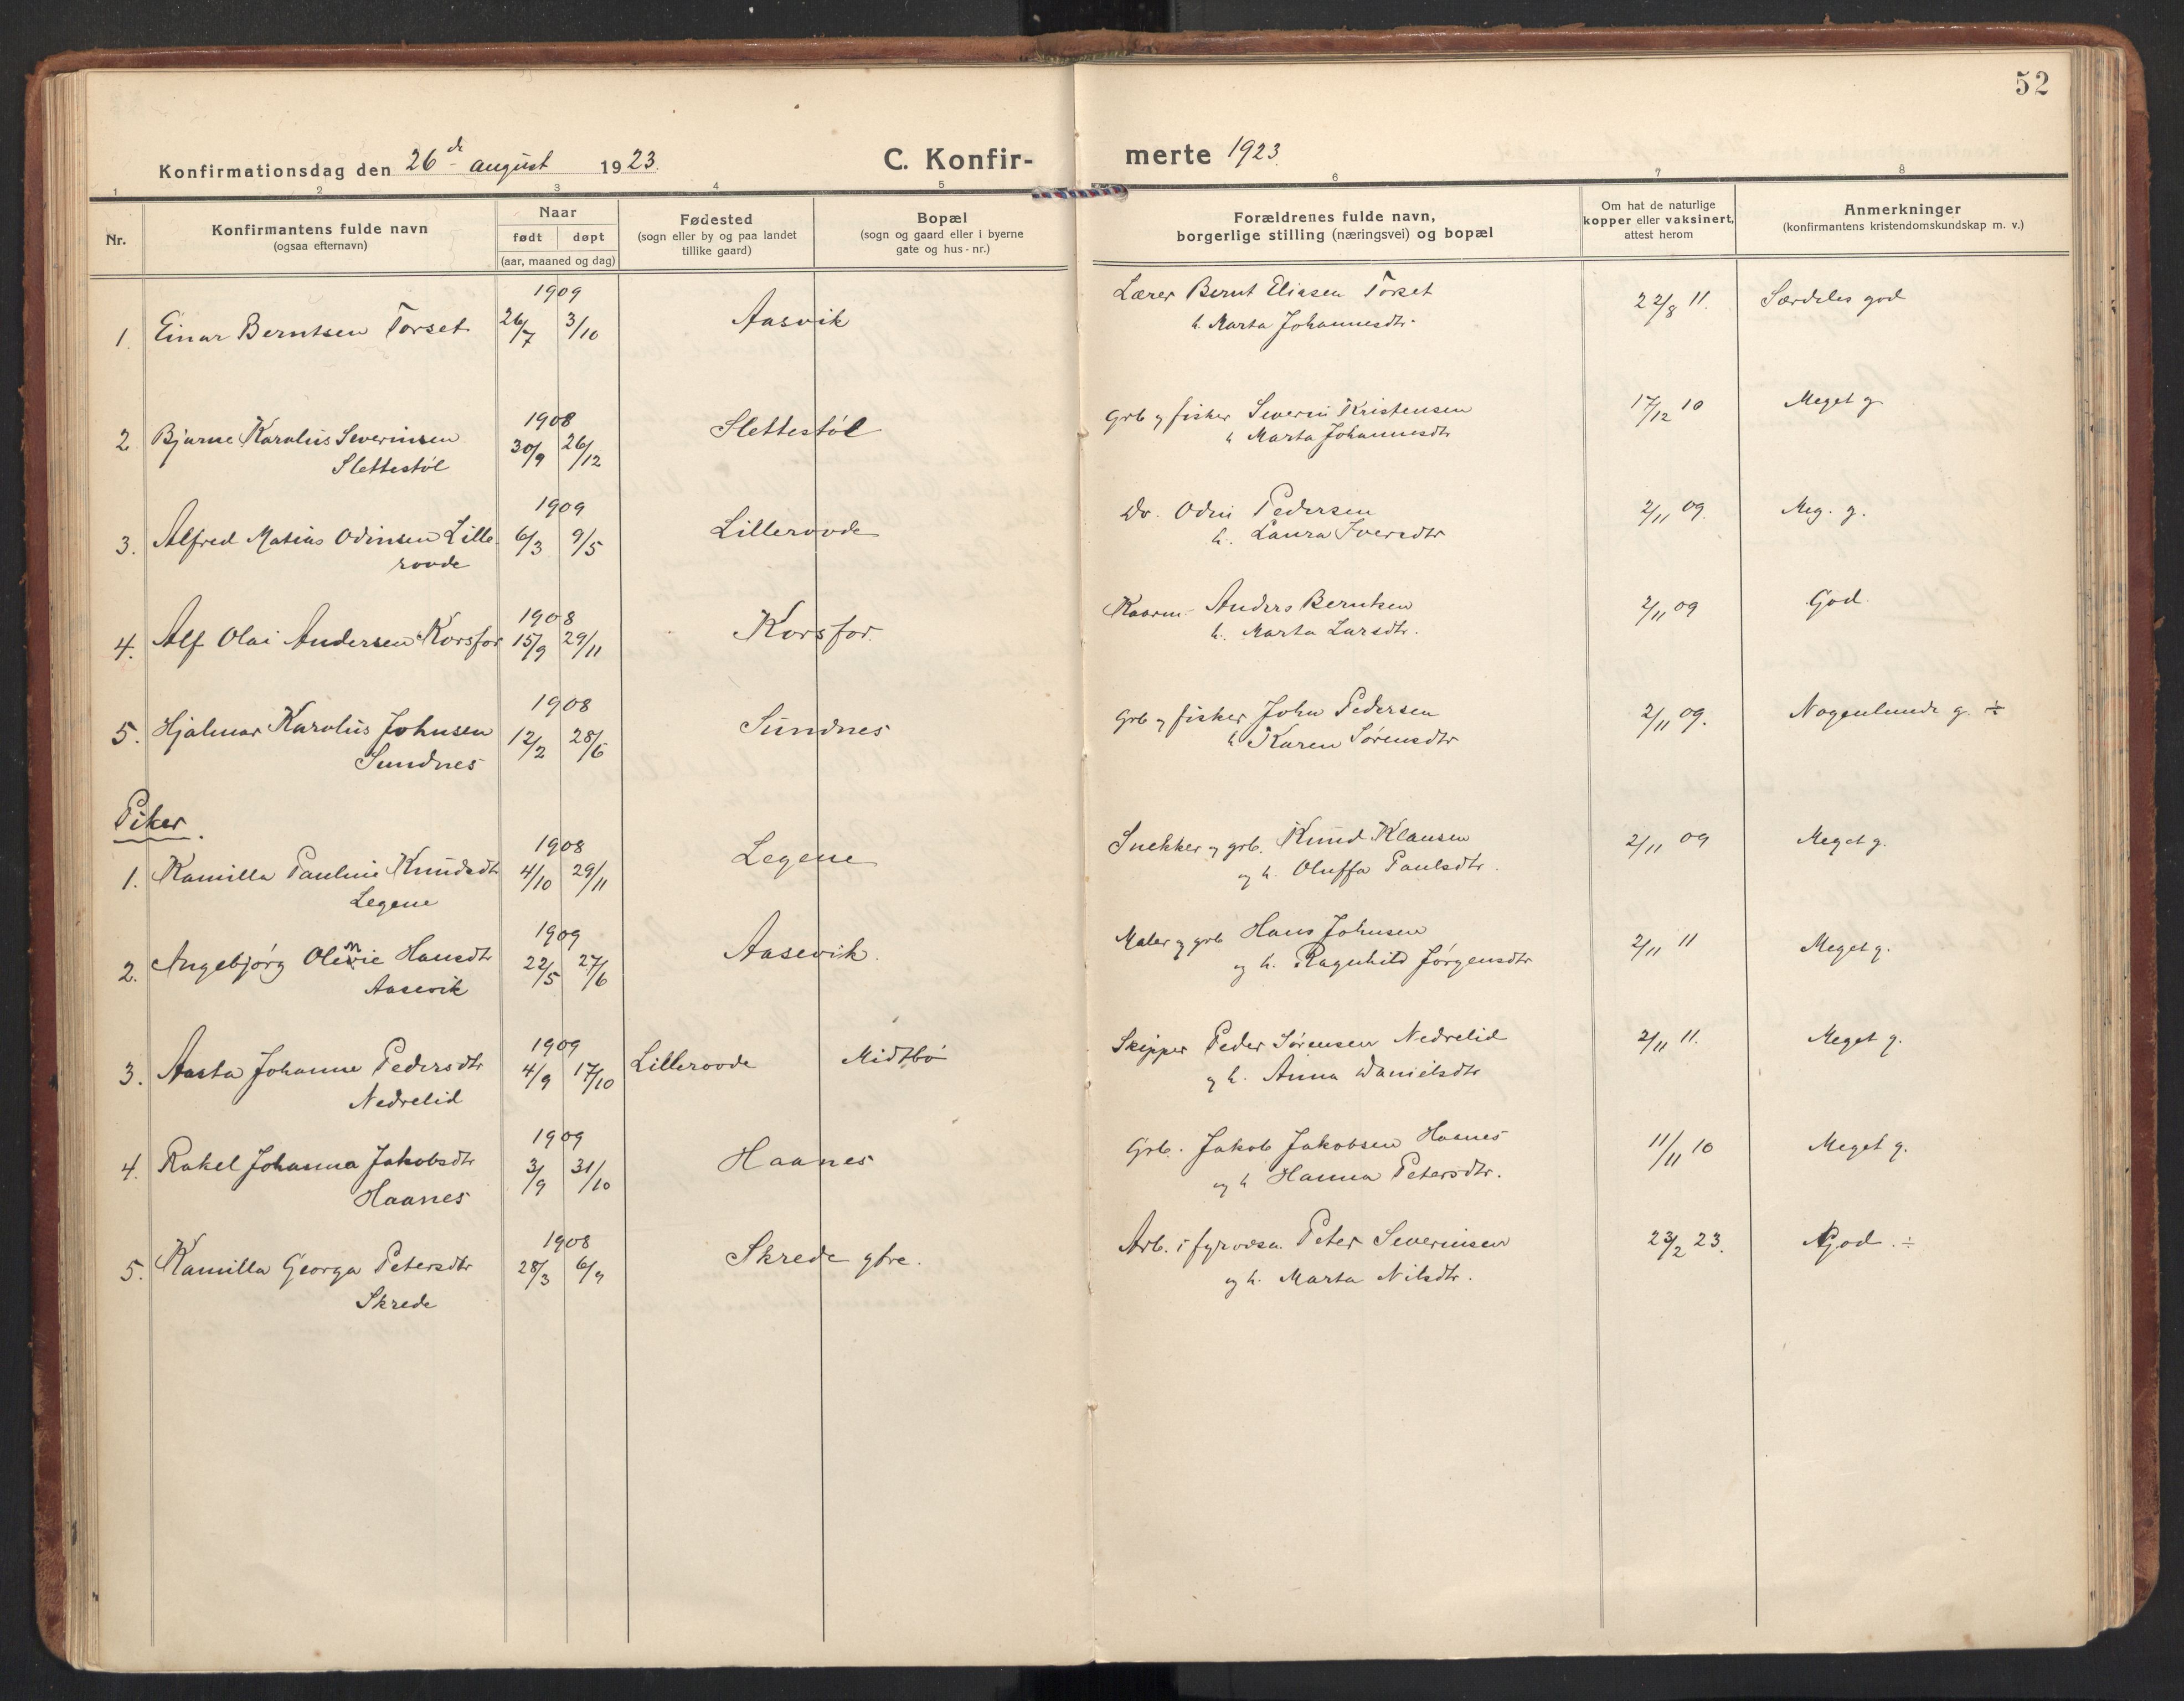 52
Konfirmationsdag den 26de august 1923.
C. Konfirmerte 1923.
1 2 3 4 5 6 7 8
Nr.
Konfirmantens fulde navn
(ogsaa efternavn)
Naar
født døpt
(aar, maaned og dag)
Fødested
(sogn eller by og paa landet
tillike gaard)
Bopæl
(sogn og gaard eller i byerne
gate og hus-nr.)
Forældrenes fulde navn,
borgerlige stilling (næringsvei) og bopæl
Om hat de naturlige
kopper eller vaksinert,
attest herom
Anmerkninger
(konfirmantens kristendomskundskap m. v.)
1909
1. Einar Berntsen Torset 26/7 3/10 Aasvik Lærer Bernt Eliasen Torset 22/8 11. Særdeles god
h. Marta Johannesdtr.
1908
2 Bjarne Karolius Severinsen 30/9 26/12 Slettestøl Grb og fisker Severin Kristensen 17/12 10 Meget g.
Slettestøl h Marta Johannesdtr
1909
3. Alfred Matias Odinsen Lille- 6/3 9/5 Lillerovde Do. Odin Pedersen 2/11 09. Meg. g.
rovde h. Laura Iversdtr
1908
4. Alf Olai Andersen Korsfor 15/9 29/11 Korsfor. Kaarm. Anders Berntsen 2/11 09 God
h. Marta Larsdtr.
1908
5. Hjalmar Karolius Johnsen 12/2 28/6 Sundnes Grb og fisker John Pedersen 2/11 09. Nogenlunde g. ÷
Sundnes h Karen Sørensdtr
Piker.
1908
1. Kamilla Pauline Knudsdtr 4/10 29/11 Legene Snekker og grb. Knud Klausen 2/11 09 Meget g.
Legene og h. Oluffa Paulsdtr.
1909
2. Angebjørg Olinie Hansdtr 22/5 27/6 Aasevik. Maler og grb Hans Johnsen 2/11 11 Meget g.
Aasevik og h. Ragnhild Jørgensdtr
1909
3. Aasta Johanne Pedersdtr 4/9 17/10 Lilleroovde Midtbø Skipper Peder Sørensen Nedrelid 2/11 11. Meget g.
Nedrelid og h. Anna Danielsdtr
1909
4. Rakel Johanna Jakobsdtr 3/9 31/10 Haanes Grb. Jakob Jakobsen Haanes 11/11 10 Meget g.
Haanes og h Hanna Petersdtr.
1908
5. Kamilla Georga Petersdtr 28/3 6/9 Skrede ytre. Arb. i fyrvæsn. Peter Severinsen 23/2 23. God. ÷
Skrede og h. Marta Nilsdtr.